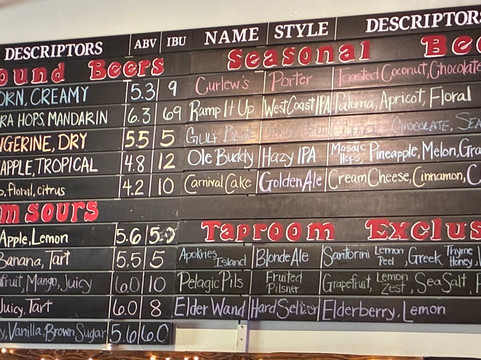 DESCRIPTORS ABV IBU NAME STYLE DESCRIPTORS
ound Beers Seasonal Bee
ORN, CREAMY 5.3 9 Curlew's Porter Toasted Coconut, Chocolate
RA HOPS MANDARIN 6.3 69 Ramp It Up West Coast IPA Paloma, Apricot, Floral
NGERINE, DRY 5.5 5 Gulf CHOCOLATE, SEA
APPLE, TROPICAL 4.8 12 Ole Buddy Hazy IPA Mosaic Hops, Pineapple, Melon, Gra
, floral, citrus 4.2 10 Carnival Cake Golden Ale Cream Cheese, Cinnamon, C
m Sours
Apple, Lemon 5.6 5.0 Taproom Exclus
Banana, Tart 5.5 5 Island Blonde Ale Santorini Lemon Peel, Greek Thyme Honey,
fruit, Mango, Juicy 6.0 10 Pelagic Pils Fruited Pilsner Grapefruit, Lemon Zest, Sea Salt,
Juicy, Tart 6.0 8 Elder Wand Hard Seltzer Elderberry, Lemon
y, Vanilla, Brown Sugar 5.6 6.0